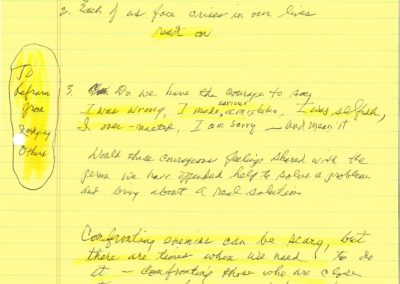 2. Each of us face crises in our lives
read on
TO
Refrain
from
Judging
Others
3. Do we have the courage to say
I was wrong, I made serious a mistake, I was selfish,
I over-reacted, I am sorry — and mean it
Would these courageous feelings shared with the
person we have offended help to solve a problem
and bring about a real solution
Confronting enemies can be scary, but
there are times when we need to do
it - confronting those who are closer